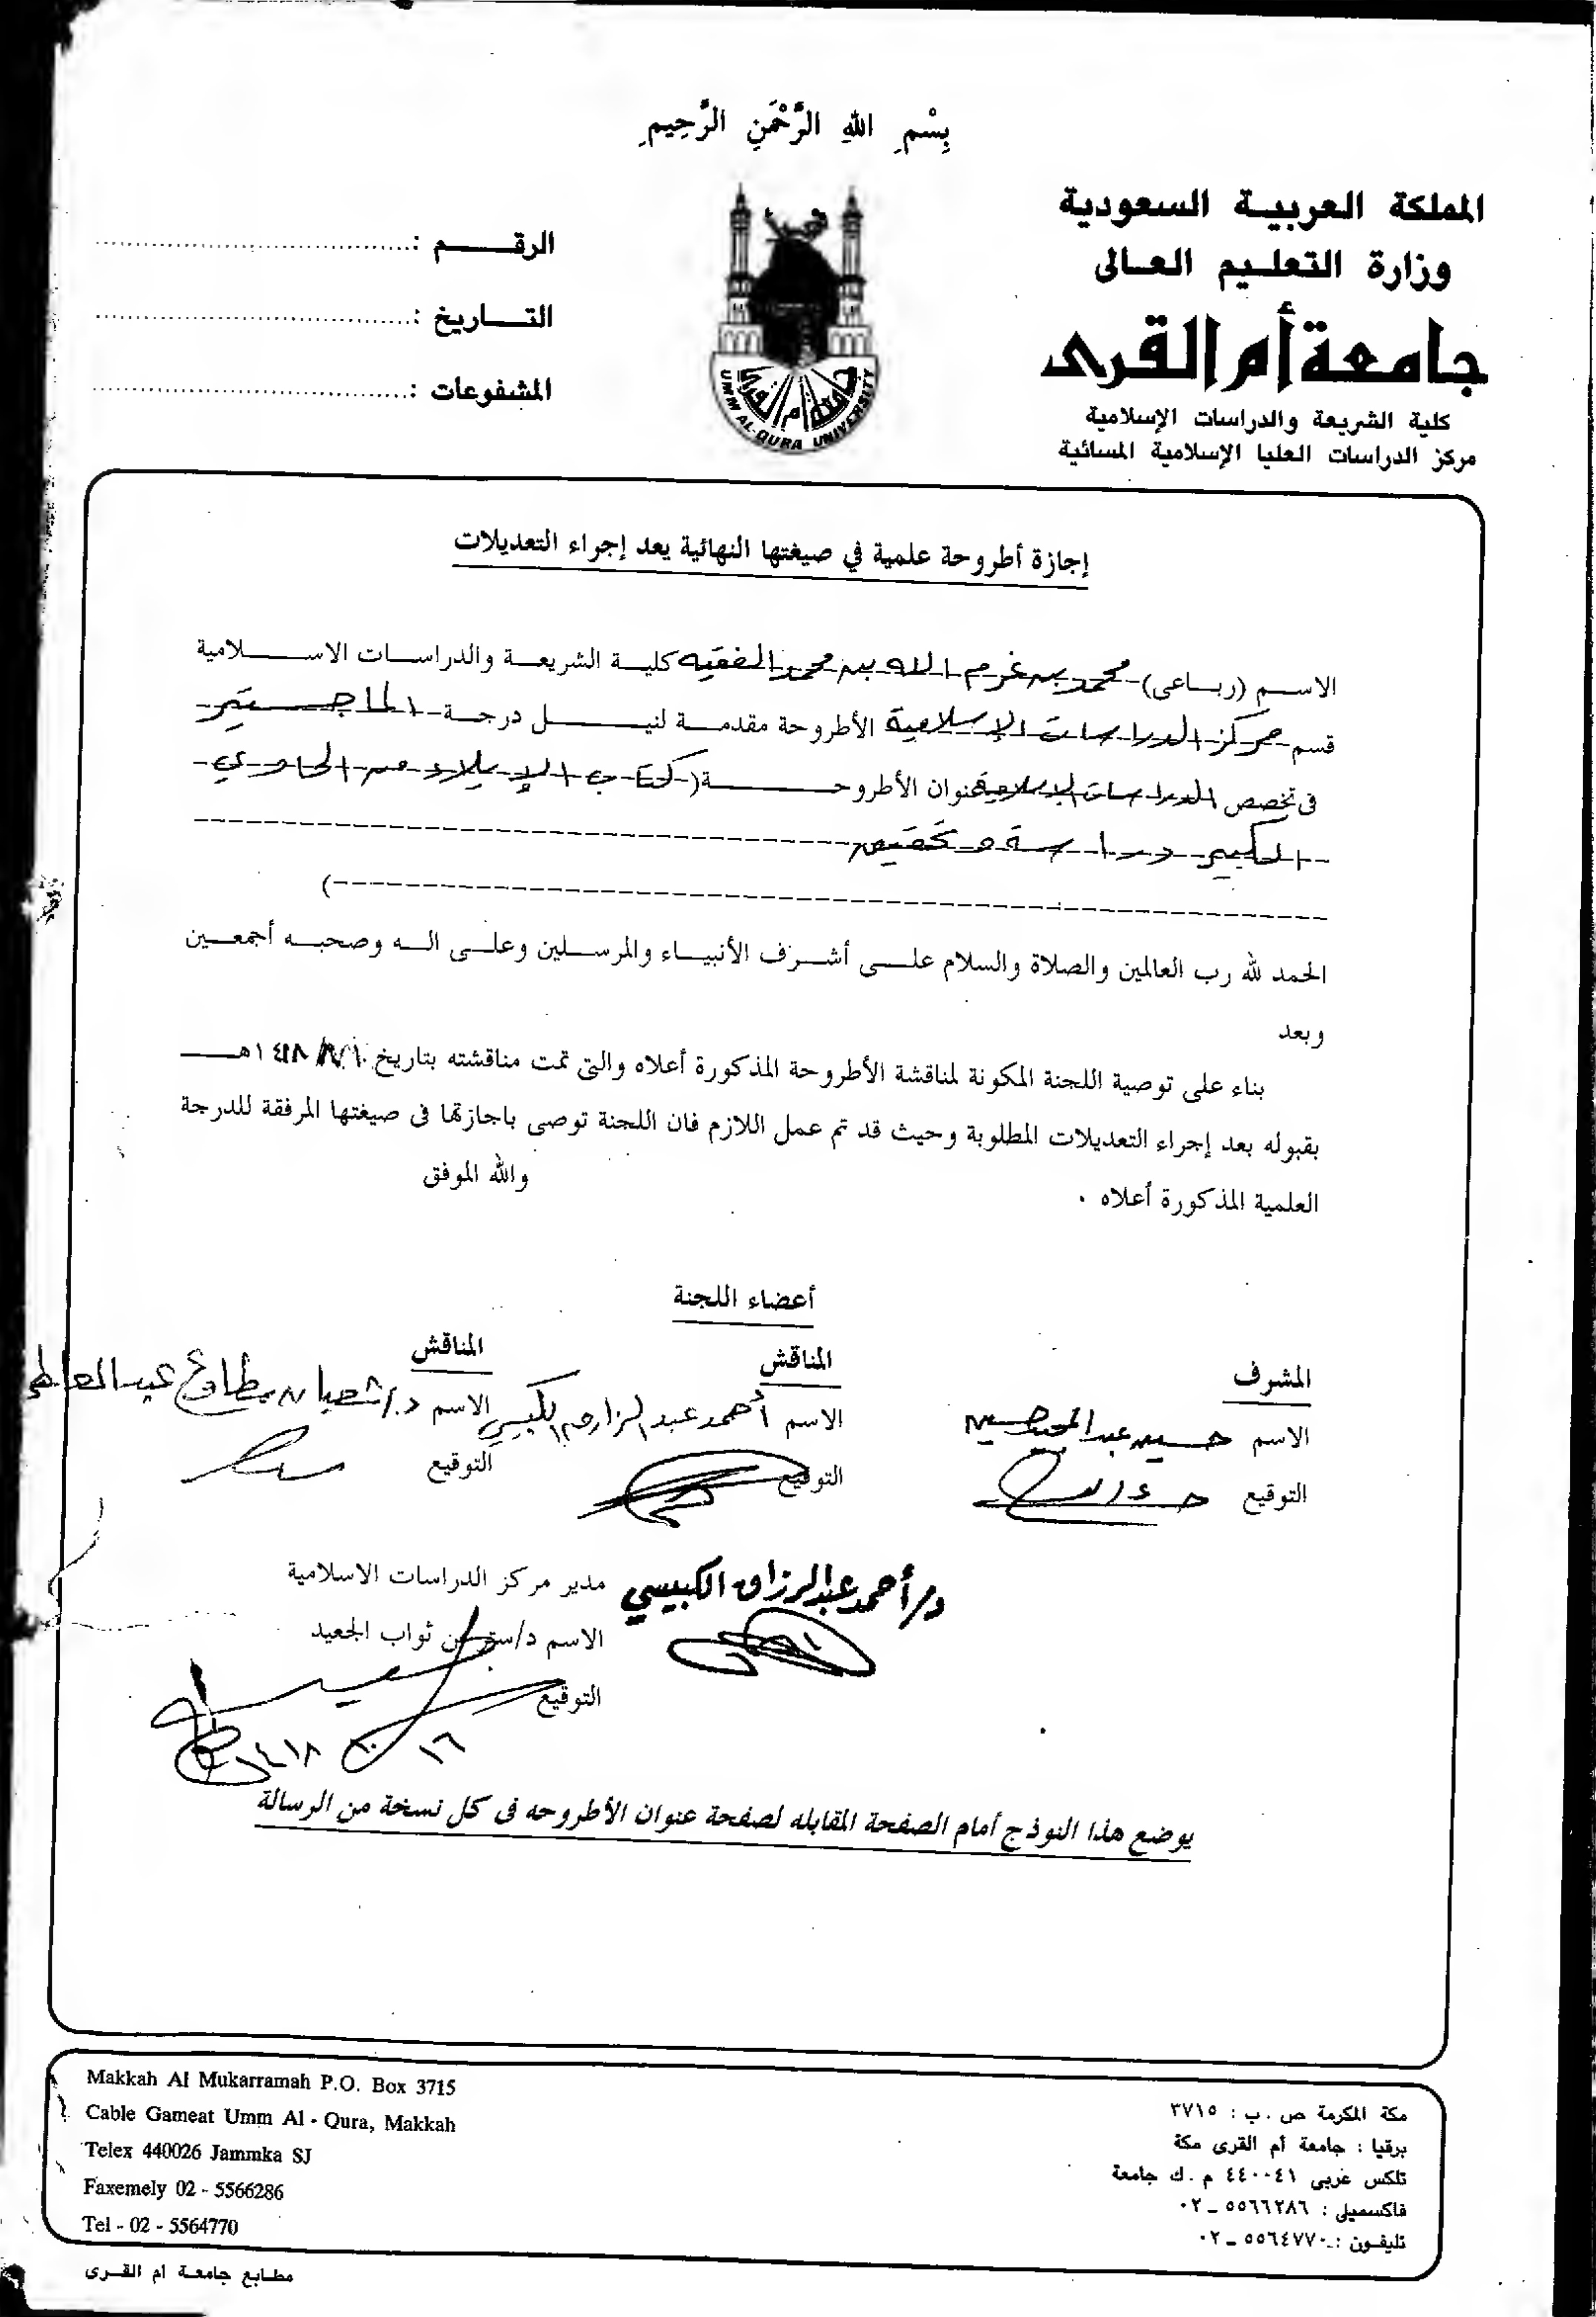 بِسْمِ اللهِ الرَّحْمَنِ الرَّحِيمِ
المملكة العربية السعودية
وزارة التعليم العالى
جامعة أم القرى
كلية الشريعة والدراسات الإسلامية
مركز الدراسات العليا الإسلامية المسائية
الرقم :
التاريخ :
المشفوعات :
جامعة أم القرى
UMM AL-QURA UNIVERSITY
إجازة أطروحة علمية في صيغتها النهائية يعد إجراء التعديلات
الاسم (رباعى) محمد بن غرم الله بن محمد الفقيه كلية الشريعة والدراسات الاسلامية
قسم مركز الدراسات الإسلامية الأطروحة مقدمة لنيل درجة الماجستير
فى تخصص الدراسات الإسلامية عنوان الأطروحة (كتاب الإيلاء من الحاوي
الكبير دراسة وتحقيق
)
الحمد لله رب العالمين والصلاة والسلام على أشرف الأنبياء والمرسلين وعلى اله وصحبه أجمعين
وبعد
بناء على توصية اللجنة المكونة لمناقشة الأطروحة المذكورة أعلاه والتى تمت مناقشته بتاريخ ١٤١٨هـ
بقبوله بعد إجراء التعديلات المطلوبة وحيث قد تم عمل اللازم فان اللجنة توصى باجازتها فى صيغتها المرفقة للدرجة
العلمية المذكورة أعلاه . والله الموفق
أعضاء اللجنة
المشرف
الاسم حسين عبد المجيد حسين
التوقيع
المناقش
الاسم أحمد عبد الرزاق الكبيسي
التوقيع
المناقش
الاسم د/ شعبان مطاوع عبد العاطي
التوقيع
د/أحمد عبدالرزاق الكبيسي
مدير مركز الدراسات الاسلامية
الاسم د/ستر بن ثواب الجعيد
التوقيع
١٦ / ١٠ / ١٤١٨
يوضع هذا النوذج أمام الصفحة المقابله لصفحة عنوان الأطروحه فى كل نسخة من الرسالة
Makkah Al Mukarramah P.O. Box 3715
Cable Gameat Umm Al - Qura, Makkah
Telex 440026 Jammka SJ
Faxemely 02 - 5566286
Tel - 02 - 5564770
مكة المكرمة ص . ب : ٣٧١٥
برقيا : جامعة أم القرى مكة
تلكس عربى ٤٤٠٠٤١ م . ك جامعة
فاكسميلى : ٥٥٦٦٢٨٦ ـ ٠٢
تليفون : ٥٥٦٤٧٧٠ ـ ٠٢
مطابع جامعة ام القرى